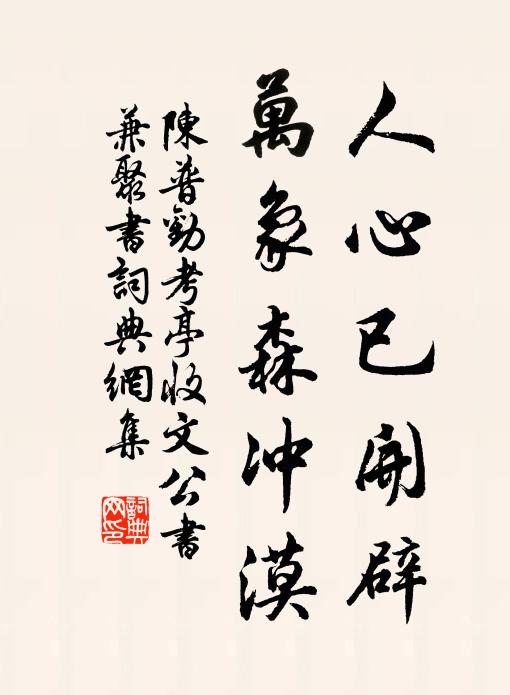 人心已開辟
萬象森沖漠
陳普勸考亭收文公書
兼聚書詞典網集
詞典網印